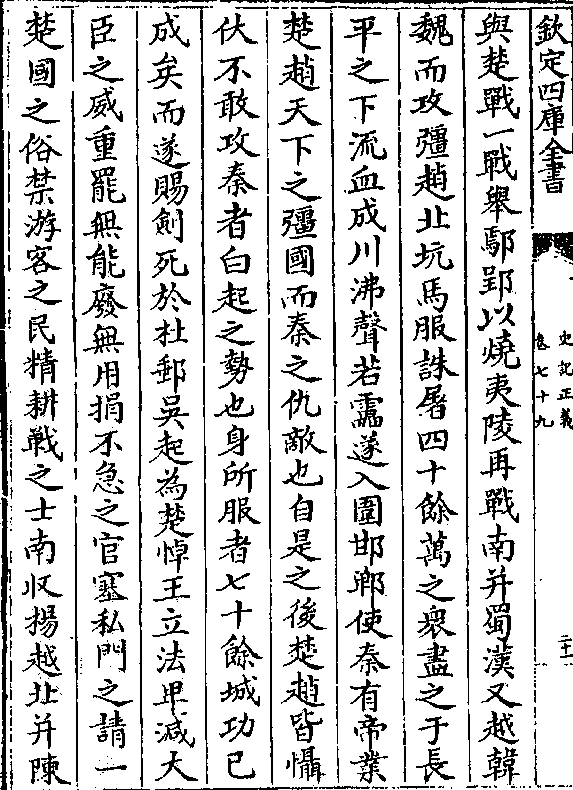 欽定四庫全書
史記正義
卷七十九
二十一
與楚戰一戰舉鄢郢以燒夷陵再戰南并蜀漢又越韓
魏而攻彊趙北坑馬服誅屠四十餘萬之衆盡之于長
平之下流血成川沸聲若靁遂入圍邯鄲使秦有帝業
楚趙天下之彊國而秦之仇敵也自是之後楚趙皆懾
伏不敢攻秦者白起之勢也身所服者七十餘城功已
成矣而遂賜劍死於杜郵吳起為楚悼王立法卑減大
臣之威重罷無能廢無用捐不急之官塞私門之請一
楚國之俗禁游客之民精耕戰之士南收揚越北并陳